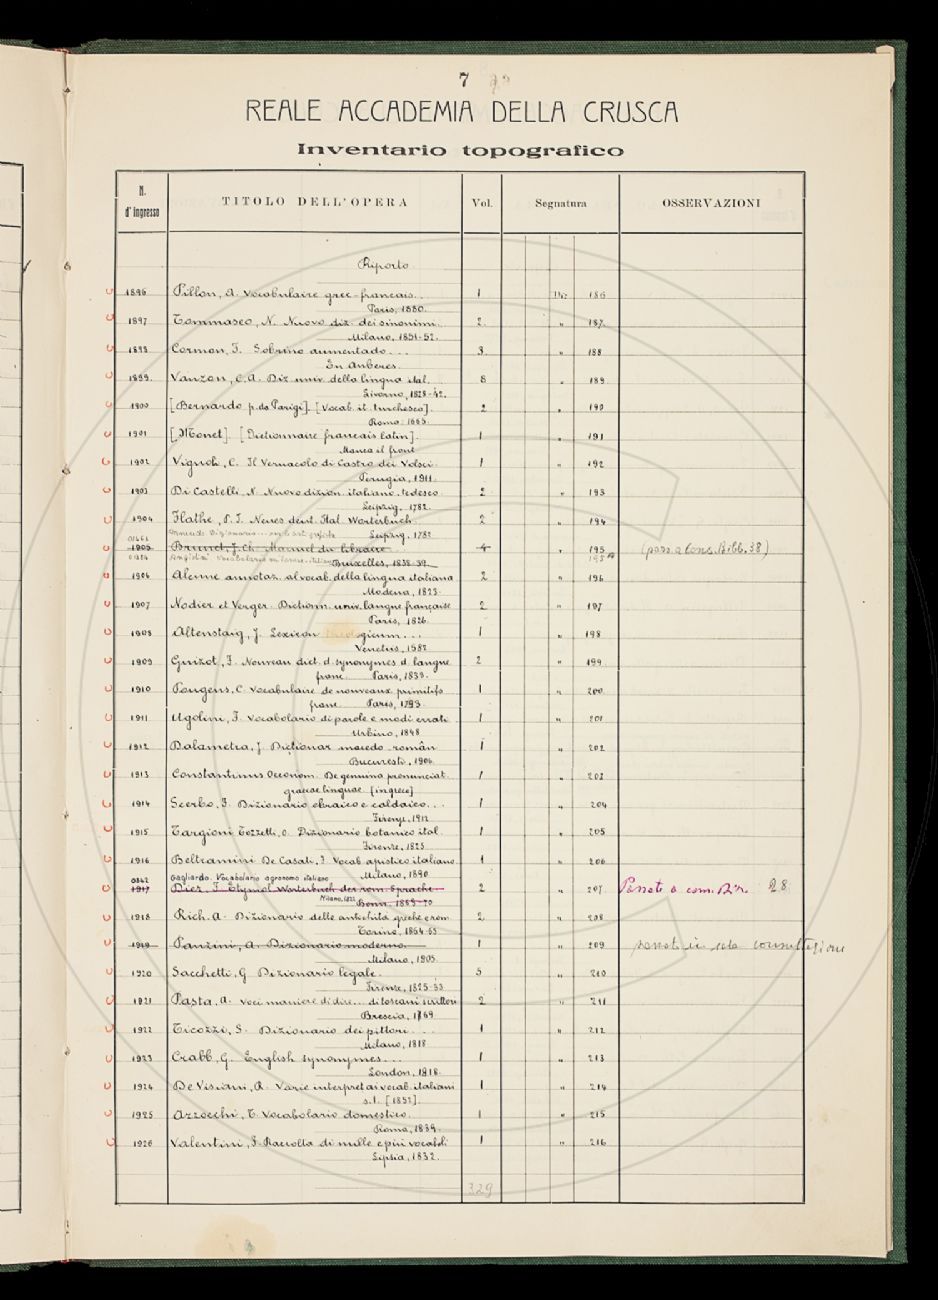 7
REALE ACCADEMIA DELLA CRUSCA
Inventario topografico
N. d'ingresso TITOLO DELL'OPERA Vol. Segnatura OSSERVAZIONI
Riporto
1896 Pillon, A. Vocabulaire grec-français.. 1 186
Paris, 1880.
1897 Tommaseo, N. Nuovo diz. dei sinonimi. 2 " 187
Milano, 1851-52.
1898 Cormon, F. Sobrino aumentado... 3 " 188
En Anberes.
1899. Vanzon, C.A. Diz. univ. della lingua ital. 8 " 189
Livorno, 1828-42.
1900 [Bernardo p. da Parigi]. [Vocab. it. turchesco]. 2 " 190
Roma. 1665.
1901 [Monet]. [Dictionnaire français latin]. 1 " 191
Manca il front.
1902 Vignoli, C. Il Vernacolo di Castro dei Volsci. 1 " 192
Perugia, 1911.
1903 Di Castelli, N. Nuovo dizion. italiano-tedesco 2 " 193
Leipzig, 1782.
1904 Flathe, P.J. Neues deut. Ital. Worterbuch 2 " 194
Leipzig, 1782
1905 Brunet, J. Ch. Manuel du libraire 4 " 195 (pass. a Cons. Bibb. 38)
Bruxelles, 1838-39.
1906 Alcune annotaz. al vocab. della lingua italiana 2 " 196
Modena, 1823.
1907 Nodier et Verger. Dictionn. univ. langue française 2 " 197
Paris, 1826.
1908 Altenstaig, J. Lexicon theologicum... 1 " 198
Venetiis, 1582
1909 Guizot, F. Nouveau dict. d. synonymes d. langue 2 " 199
franc. Paris, 1833.
1910 Pougens, C. Vocabulaire de nouveaux primitifs 1 " 200
franc. Paris, 1793.
1911 Ugolini, F. Vocabolario di parole e modi errati 1 " 201
Urbino, 1848
1912 Dalametra, J. Dicționar macedo-român 1 " 202
Bucuresti, 1906.
1913 Constantinus Oeconom. De genuina pronunciat. 1 " 203
graecae linguae [in greco]
1914 Scerbo, F. Dizionario ebraico e caldaico... 1 " 204
Firenze, 1912
1915 Targioni Tozzetti, O. Dizionario botanico ital. 1 " 205
Firenze, 1825
1916 Beltramini De Casati, F. Vocab. apistico italiano 1 " 206
Milano, 1890
Gagliardo. Vocabolario agronomo italiano
Milano, 1822
1917 Diez, F. Etymol. Worterbuch der rom. Sprache 2 " 207. Passato a com. Diz. 28
Bonn, 1869-70
1918 Rich. A. Dizionario delle antichità greche e rom. 2 " 208
Torino, 1864-65
1919 Panzini, A. Dizionario moderno. 1 " 209 passato in sala consultazione
Milano, 1905.
1920 Sacchetti, G. Dizionario legale. 5 " 210
Firenze, 1825-33
1921 Pasta, A. Voci maniere di dire... di toscani scrittori 2 " 211
Brescia, 1769.
1922 Ticozzi, S. Dizionario dei pittori... 1 " 212
Milano, 1818
1923 Crabb, G. English synonymes... 1 " 213
London, 1818.
1924 De Visiani, R. Varie interpret. ai vocab. italiani 1 " 214
s.l. [1852].
1925 Azzocchi, T. Vocabolario domestico. 1 " 215
Roma, 1839.
1926 Valentini, F. Raccolta di mille e più vocaboli 1 " 216
Lipsia, 1832.
329